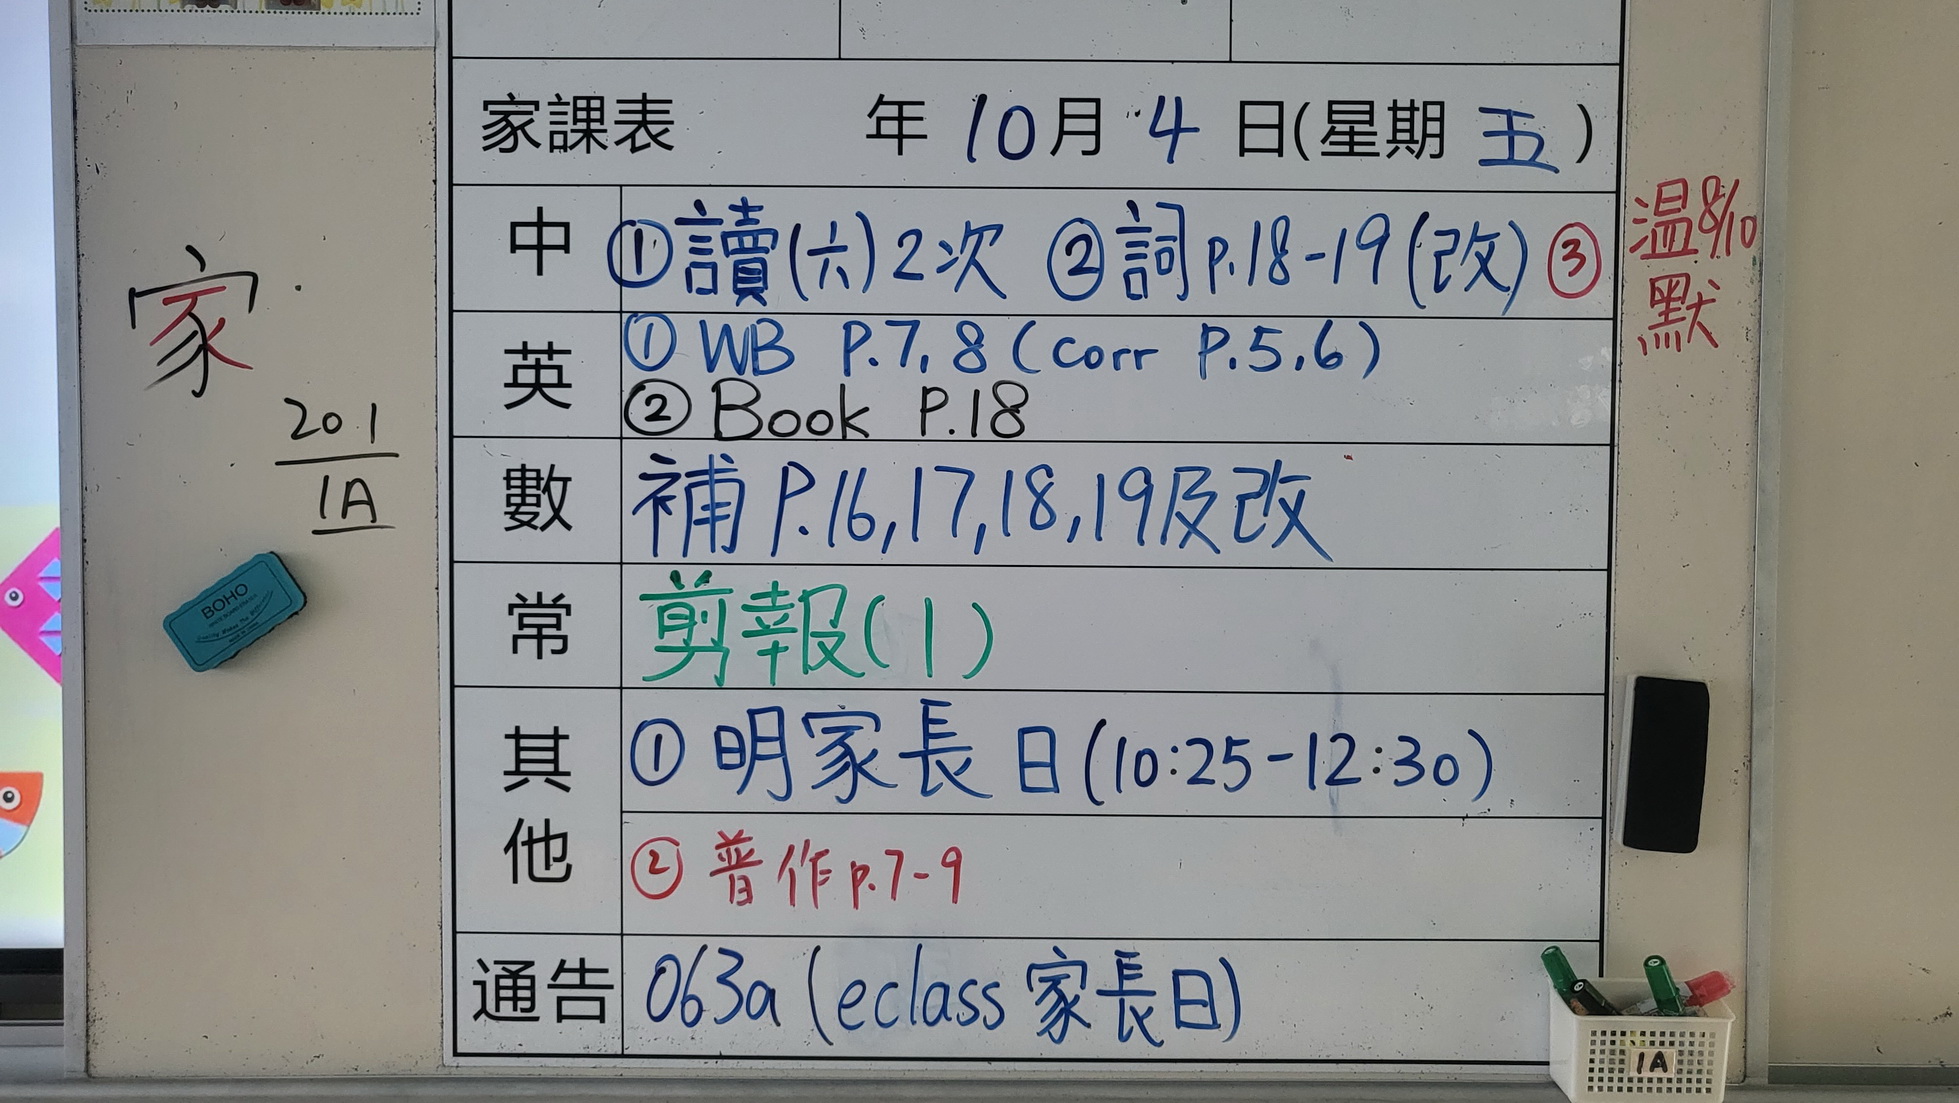 家課表 年 10月 4 日(星期 五)
中 ①讀(六)2次 ②詞p.18-19(改) ③ 温8/10
默
英 ① WB P.7,8 (corr P.5,6)
② Book P.18
數 補 P.16,17,18,19及改
常 剪報(1)
其他 ① 明家長日(10:25-12:30)
② 普作p.7-9
通告 063a (eclass 家長日)
家
201
1A
BOHO
1A